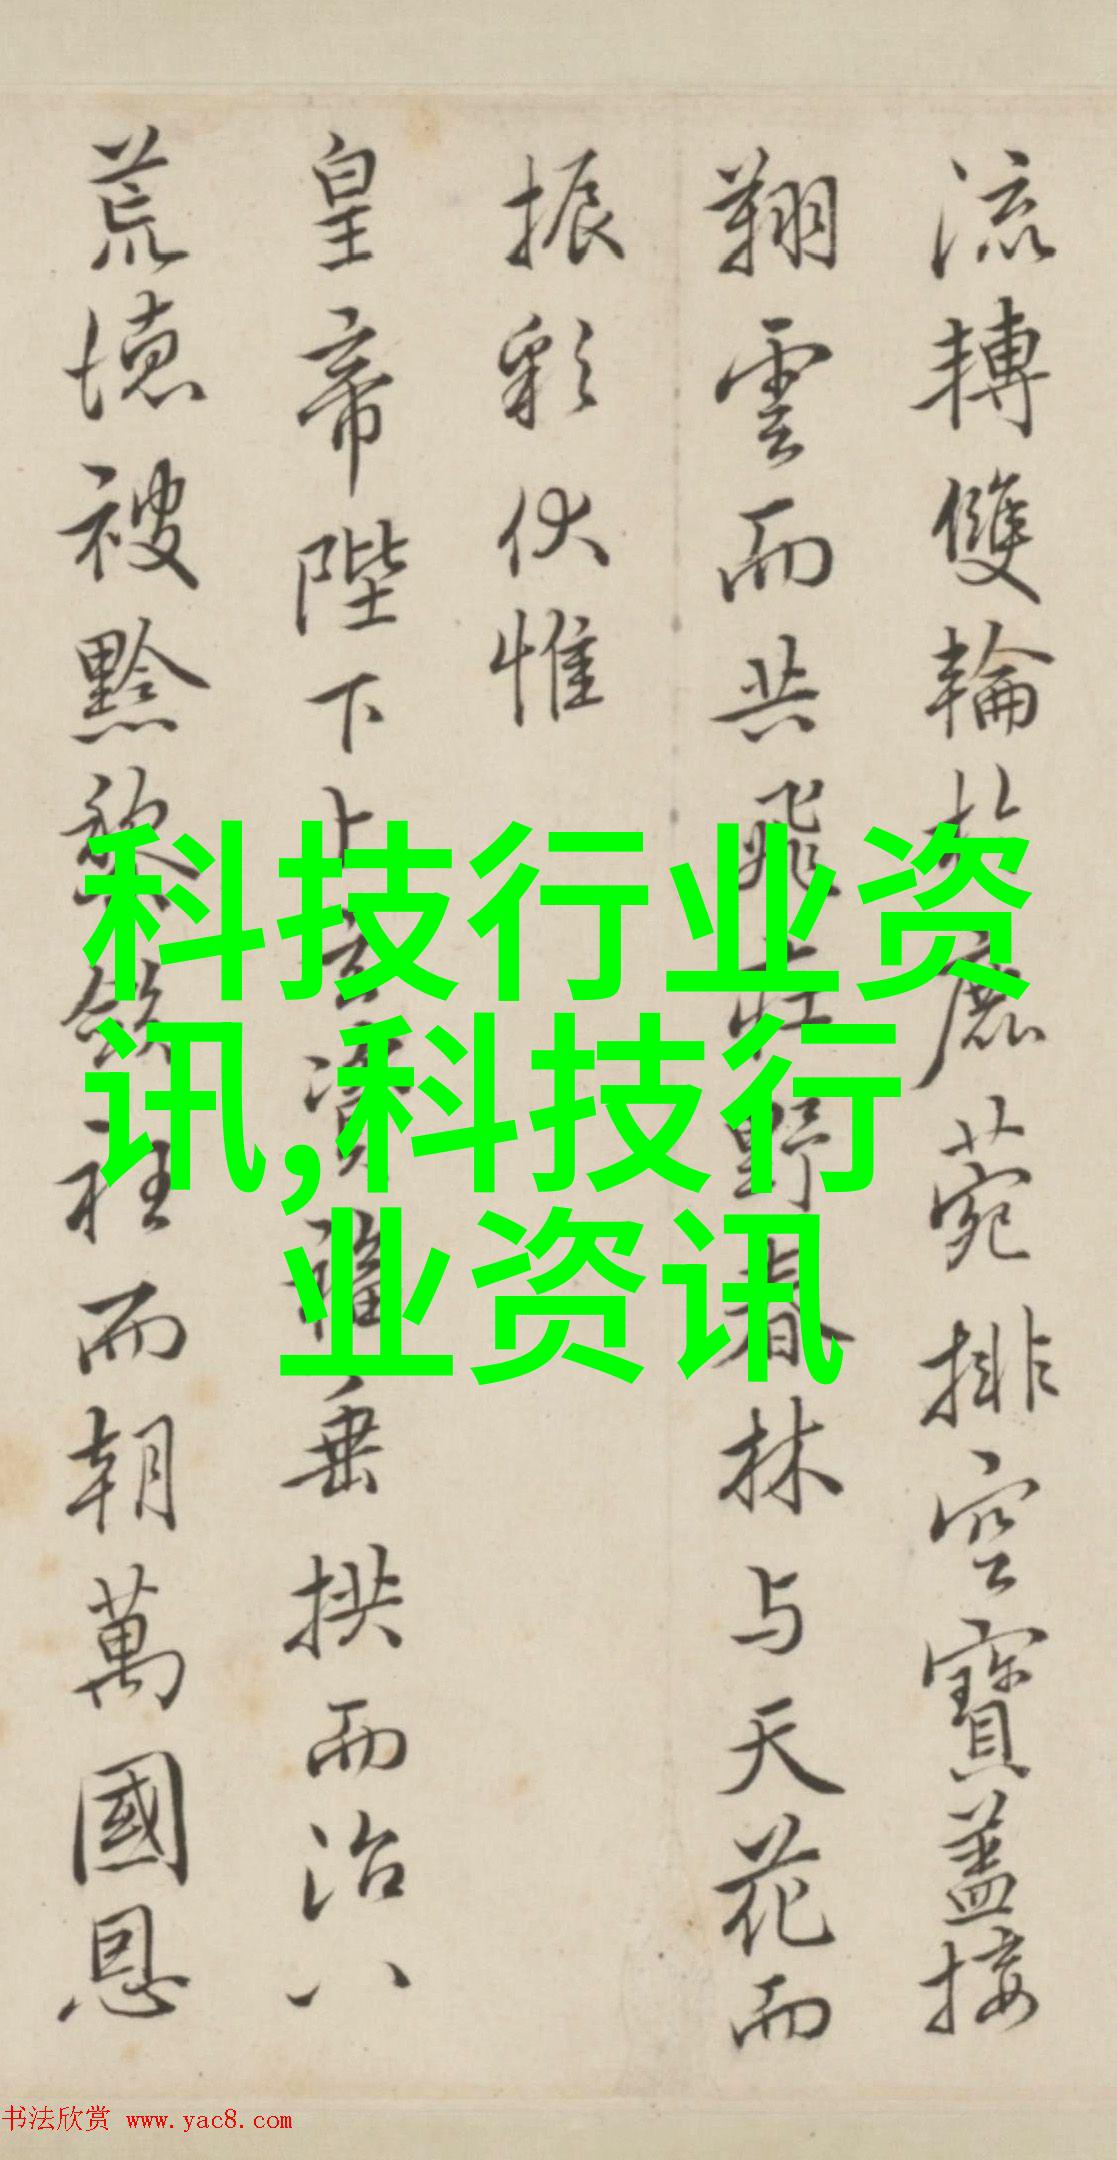 流轉雙輪於鹿菀排空寶蓋接
翔雲而共飛莊野春林与天花而
振彩伏惟
皇帝陛下上玄資福垂拱而治八
荒德被黔黎斂衽而朝萬國恩
科技行业资
讯,科技行
业资讯
书法欣赏 www.yac8.com